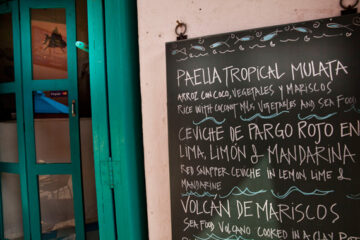 PAELLA TROPICAL MULATA
ARROZ CON COCO, VEGETALES Y MARISCOS
RICE WITH COCONUT MILK, VEGETABLES AND SEA FOOD
CEVICHE DE PARGO ROJO EN
LIMA, LIMÓN & MANDARINA
RED SNAPPER CEVICHE IN LEMON LIME &
MANDARINE
VOLCÁN DE MARISCOS
SEA FOOD VOLCANO COOKED IN A CLAY POT